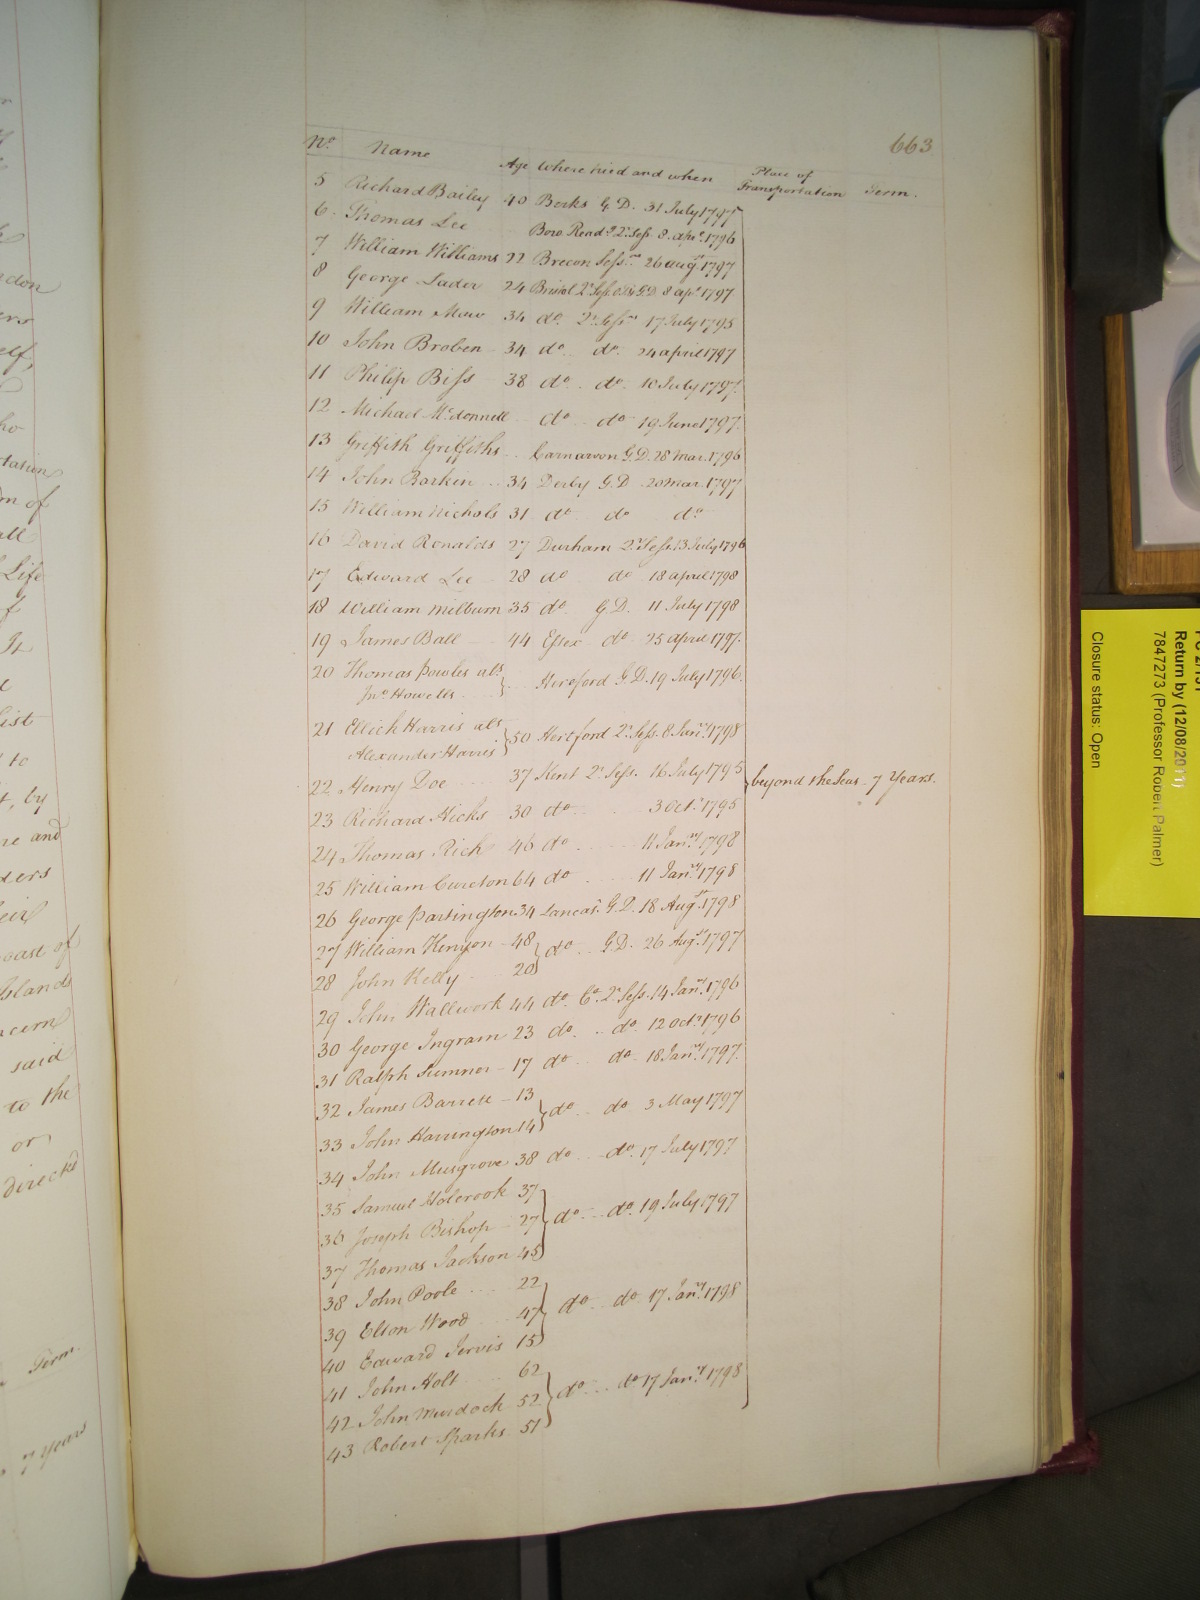 663
No. Name Age Where tried and when Place of Transportation Term.
5 Richard Bailey 40 Berks G.D. 31 July 1797
6 Thomas Lee Boro Readg. Qr. Sess. 8 apr. 1796
7 William Williams 22 Brecon Sessns. 26 augst. 1797
8 George Lader 24 Bristol Qr. Sess. G.D 8 apl. 1797
9 William Maw 34 do. Qr. Sessns 17 July 1795
10 John Broben 34 do. do. 24 april 1797
11 Philip Biss 38 do. do. 10 July 1797.
12 Michael McDonnell do. do 19 June 1797.
13 Griffith Griffiths Carnarvon G.D. 28 Mar. 1796
14 John Barkin 34 Derby G.D 20 Mar. 1797
15 William Nichols 31 do. do do.
16 David Ronalds 27 Durham Qr. Sess. 13 July 1796
17 Edward Lee 28 do do 18 april 1798
18 William Milburn 35 do. G.D. 11 July 1798
19 James Ball 44 Essex do. 25 april 1797.
20 Thomas Powles als.
Jno. Howells Hereford G.D. 19 July 1796.
21 Harris als
Alexander Harris 50 Hertford Qr. Sess. 8 Janr. 1798
22 Henry Doe 37 Kent Qr. Sess. 16 July 1795 beyond the Seas 7 Years.
23 Richard Hicks 30 do. 3 Octr. 1795
24 Thomas Rich 46 do 11 Janry. 1798
25 William Cureton 64 do 11 Janry. 1798
26 George Partington 34 Lancasr. G.D. 18 Augst. 1798
27 William Kenyon 48 do. G.D. 26 Augst. 1797
28 John Kelly 20
29 John Wallwork 44 do. Co. Qr. Sess. 14 Janry. 1796
30 George Ingram 23 do. do. 12 Octr. 1796
31 Ralph Sumner 17 do do. 18 Janry. 1797.
32 James Barrett 13 do. do 3 May 1797
33 John Harrington 14
34 John Musgrove 38 do do. 17 July 1797
35 Samuel Holbrook 37
36 Joseph Bishop 27 do. do. 19 July 1797
37 Thomas Jackson 45
38 John Poole 22
39 Elton Wood 47 do. do. 17 Janry. 1798
40 Edward Jervis 15
41 John Holt 62
42 John Murdock 52 do. do 17 Janry. 1798
43 Robert Sparks 51
Return by (12/08/2011)
7847273 (Professor Robert Palmer)
Closure status: Open